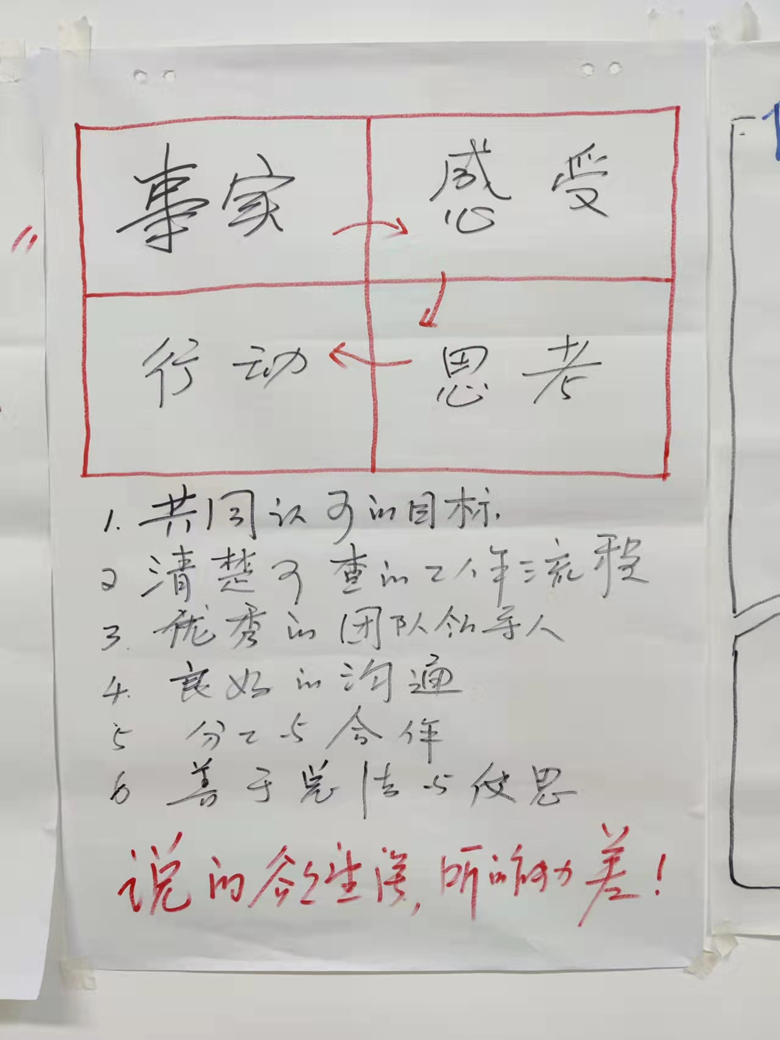 事家 感受
行动 思考
1. 共同认可的目标.
2 清楚可查的工作流程
3. 优秀的团队领导人
4. 良好的沟通
5 分工与合作
6 善于 与 思
说的 , 听 差!